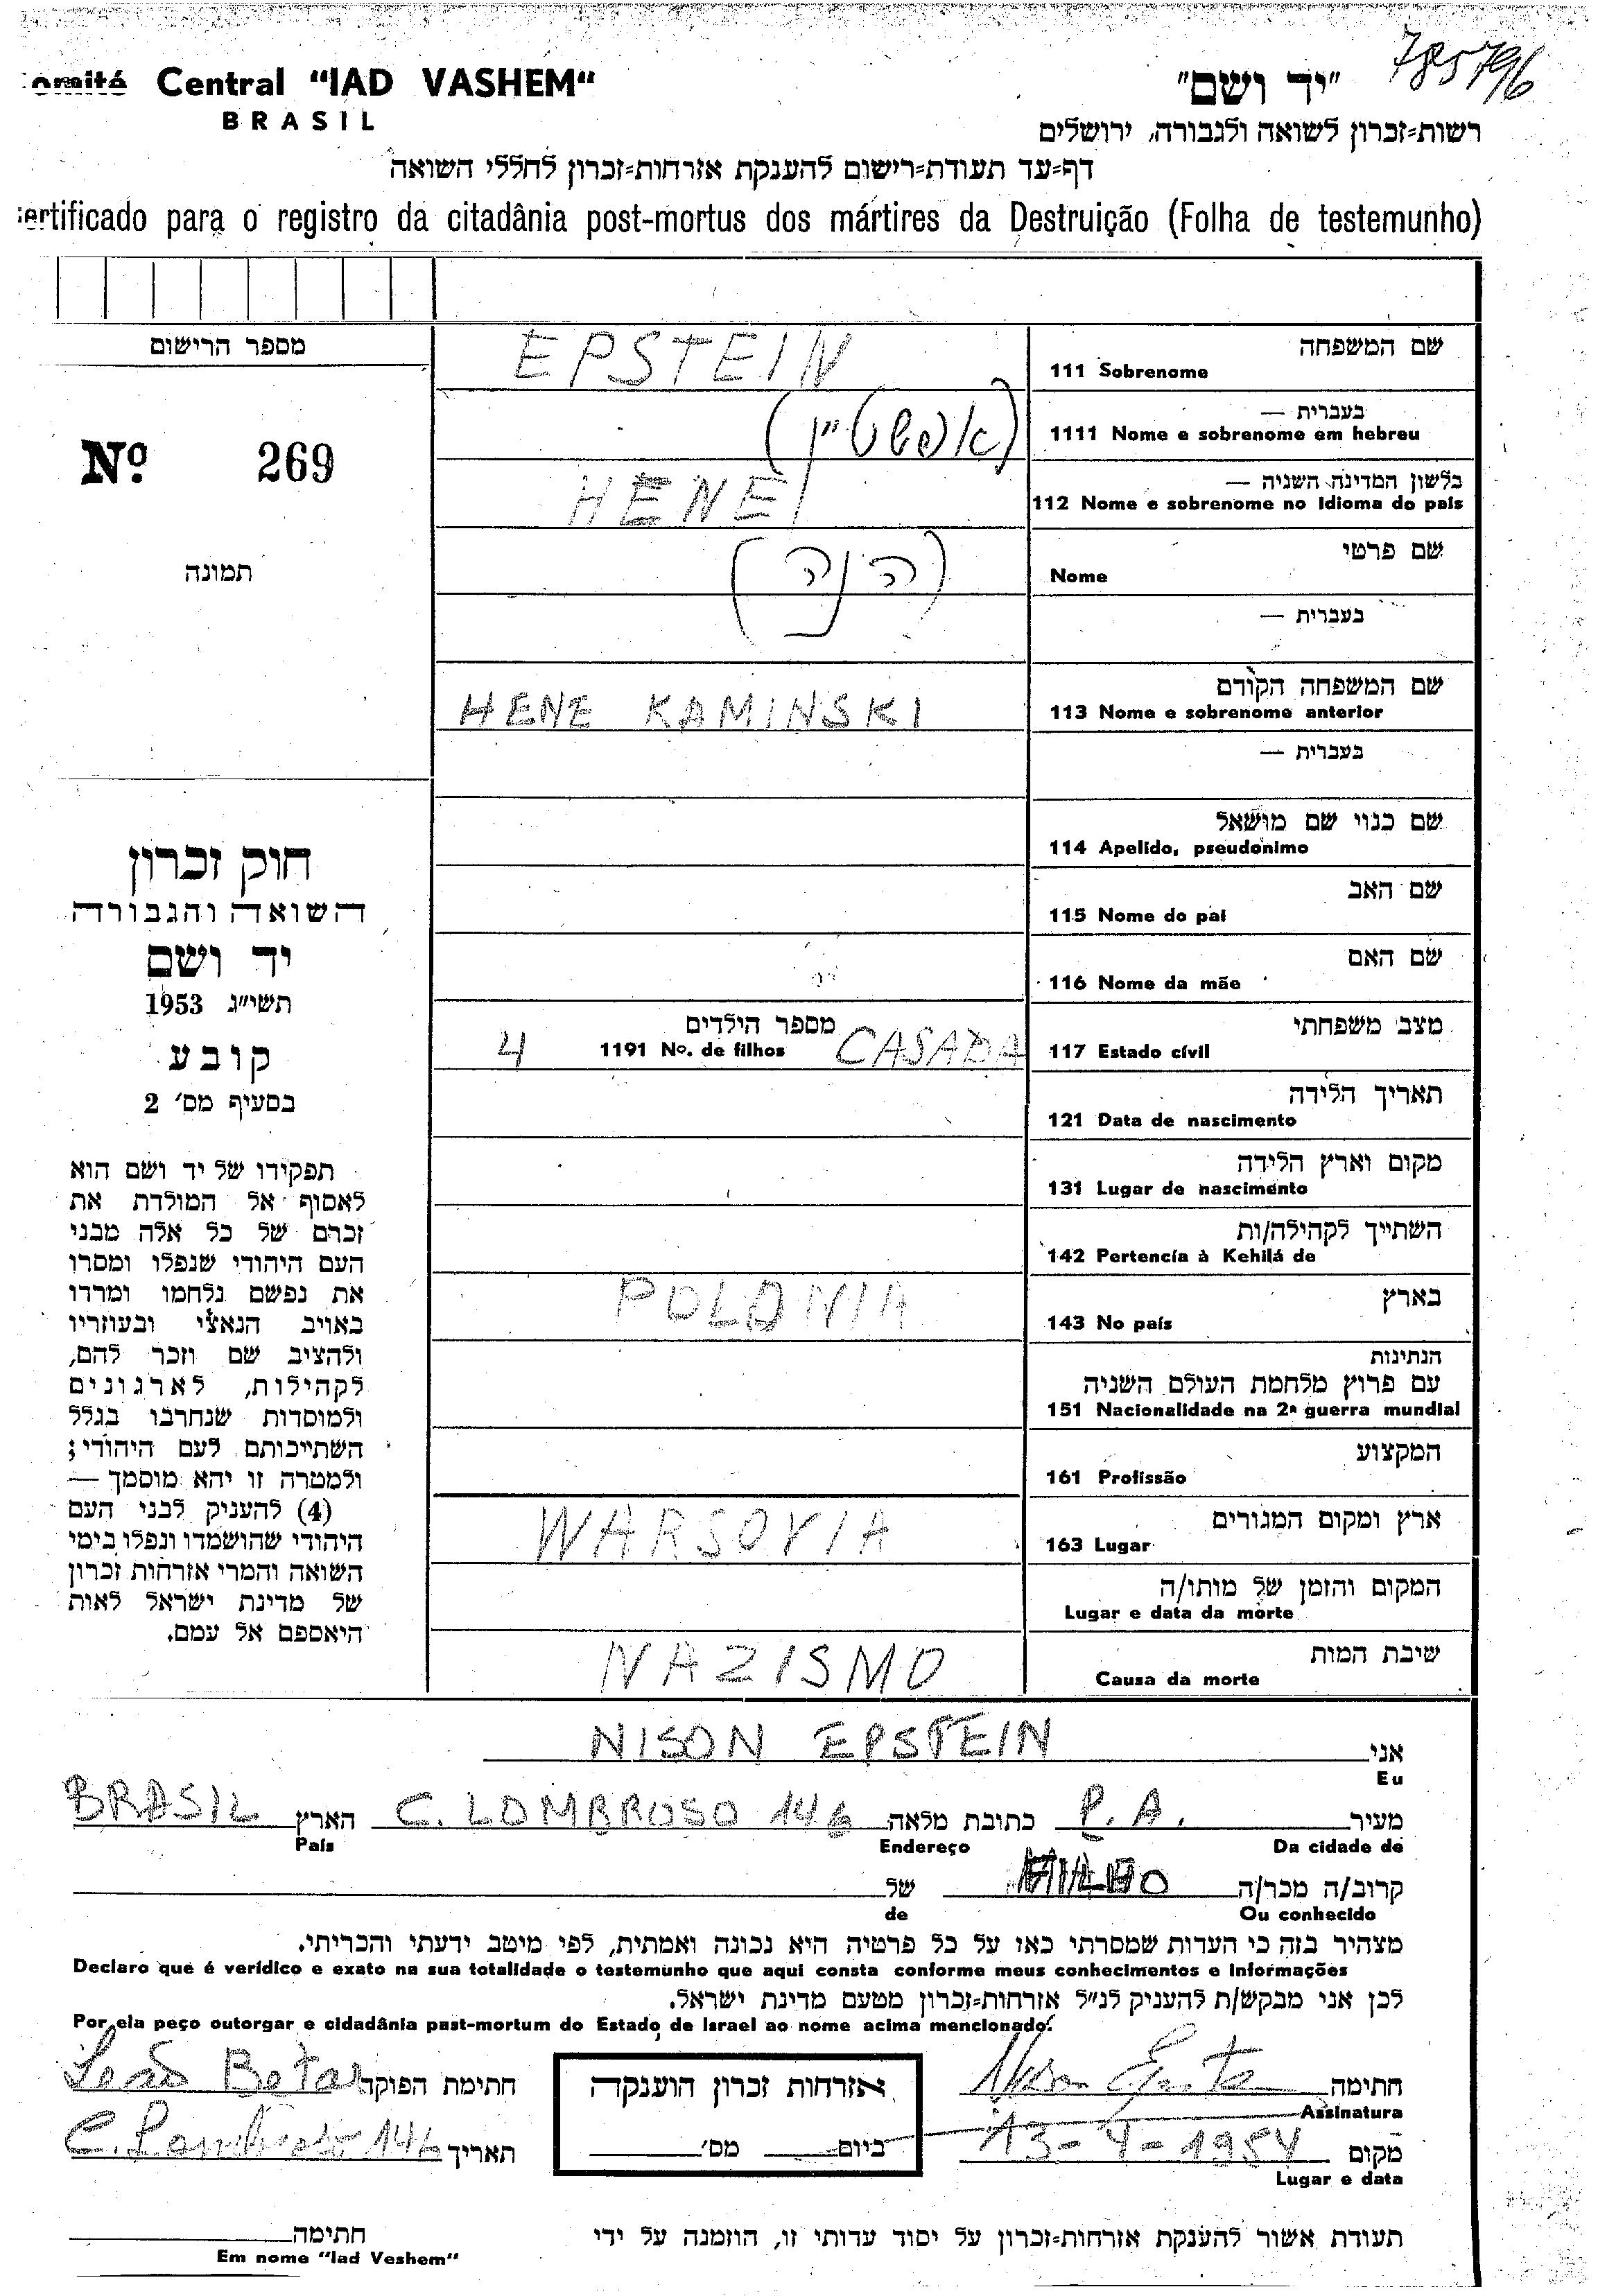 785796
omité Central "IAD VASHEM"
BRASIL
"יד ושם"
רשות=זכרון לשואה ולגבורה, ירושלים
דף=עד תעודת=רישום להענקת אזרחות=זכרון לחללי השואה
ertificado para o registro da citadânia post-mortus dos mártires da Destruição (Folha de testemunho)
מספר הרישום
Nº 269
תמונה
שם המשפחה
111 Sobrenome
EPSTEIN
בעברית —
1111 Nome e sobrenome em hebreu
(אפשטיין)
בלשון המדינה השניה —
112 Nome e sobrenome no Idioma do país
HENE
שם פרטי
Nome
(הנה)
בעברית —
שם המשפחה הקודם
113 Nome e sobrenome anterior
HENE KAMINSKI
בעברית —
שם כנוי שם מושאל
114 Apelido, pseudonimo
שם האב
115 Nome do pai
שם האם
116 Nome da mãe
מצב משפחתי
117 Estado cívil
CASADA
מספר הילדים
1191 Nº. de filhos
4
תאריך הלידה
121 Data de nascimento
מקום וארץ הלידה
131 Lugar de nascimento
השתייך לקהילה/ות
142 Pertencía à Kehilá de
בארץ
143 No país
POLONIA
הנתינות
עם פרוץ מלחמת העולם השניה
151 Nacionalidade na 2ª guerra mundial
המקצוע
161 Profissão
ארץ ומקום המגורים
163 Lugar
WARSOVIA
המקום והזמן של מותו/ה
Lugar e data da morte
שיבת המות
Causa da morte
NAZISMO
חוק זכרון
השואה והגבורה
יד ושם
תשי"ג 1953
קובע
בסעיף מס' 2
תפקידו של יד ושם הוא
לאסוף אל המולדת את
זכרם של כל אלה מבני
העם היהודי שנפלו ומסרו
את נפשם נלחמו ומרדו
באויב הנאצי ובעוזריו
ולהציב שם וזכר להם,
לקהילות, לארגונים
ולמוסדות שנחרבו בגלל
השתייכותם לעם היהודי;
ולמטרה זו יהא מוסמך —
(4) להעניק לבני העם
היהודי שהושמדו ונפלו בימי
השואה והמרי אזרחות זכרון
של מדינת ישראל לאות
היאספם אל עמם.
אני NISON EPSTEIN
Eu
מעיר P.A. כתובת מלאה C. LOMBROSO 146 הארץ BRASIL
Da cidade de Endereço País
קרוב/ה מכר/ה FILHO של
Ou conhecido de
מצהיר בזה כי העדות שמסרתי כאן על כל פרטיה היא נכונה ואמתית, לפי מיטב ידעתי והכרתי.
Declaro que é verídico e exato na sua totalidade o testemunho que aqui consta conforme meus conhecimentos e informações
לכן אני מבקש/ת להעניק לנ"ל אזרחות=זכרון מטעם מדינת ישראל.
Por ela peço outorgar e cidadânia past-mortum do Estado de Israel ao nome acima mencionado.
חתימה
Assinatura
אזרחות זכרון הוענקה
ביום מס'
חתימת הפוקד
מקום 13-4-1954
Lugar e data
תאריך 146
תעודת אשור להענקת אזרחות=זכרון על יסוד עדותי זו, הוזמנה על ידי
חתימה
Em nome "Iad Veshem"